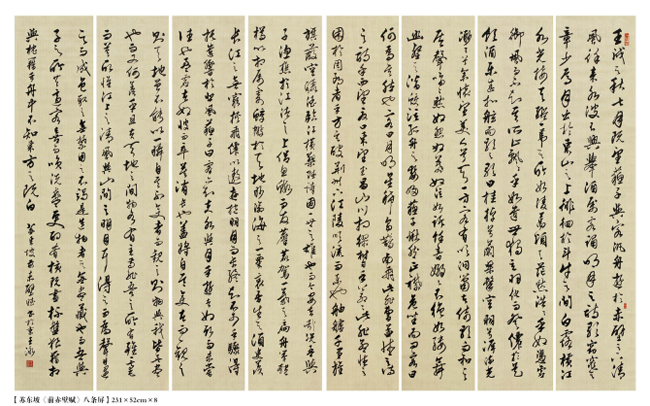 壬戌之秋七月既望蘇子與客泛舟遊於赤壁之下清
風徐來水波不興舉酒屬客誦明月之詩歌窈窕之
章少焉月出於東山之上徘徊於斗牛之間白露橫江
水光接天縱一葦之所如凌萬頃之茫然浩浩乎如馮虛
御風而不知其所止飄飄乎如遺世獨立羽化而登仙於是
飲酒樂甚扣舷而歌之歌曰桂棹兮蘭槳擊空明兮溯流光
渺渺兮予懷望美人兮天一方客有吹洞簫者倚歌而和之
其聲嗚嗚然如怨如慕如泣如訴餘音嫋嫋不絕如縷舞
幽壑之潛蛟泣孤舟之嫠婦蘇子愀然正襟危坐而問客曰
何為其然也客曰月明星稀烏鵲南飛此非曹孟德
之詩乎西望夏口東望武昌山川相繆鬱乎蒼蒼此非孟德之
困於周郎者乎方其破荊州下江陵順流而東也舳艫千里旌
旗蔽空釃酒臨江橫槊賦詩固一世之雄也而今安在哉況吾與
子漁樵於江渚之上侶魚蝦而友麋鹿駕一葉之扁舟舉匏
樽以相屬寄蜉蝣於天地渺滄海之一粟哀吾生之須臾羨
長江之無窮挾飛仙以遨遊抱明月而長終知不可乎驟得
托遺響於悲風蘇子曰客亦知夫水與月乎逝者如斯而未嘗
往也盈虛者如彼而卒莫消長也蓋將自其變者而觀之
則天地曾不能以一瞬自其不變者而觀之則物與我皆無盡
也而又何羨乎且夫天地之間物各有主苟非吾之所有雖一毫
而莫取惟江上之清風與山間之明月耳得之而為聲目遇
之而成色取之無禁用之不竭是造物者之無盡藏也而吾與
子之所共適客喜而笑洗盞更酌肴核既盡杯盤狼藉相
與枕藉乎舟中不知東方之既白
【苏东坡《前赤壁赋》八条屏】231×52cm×8